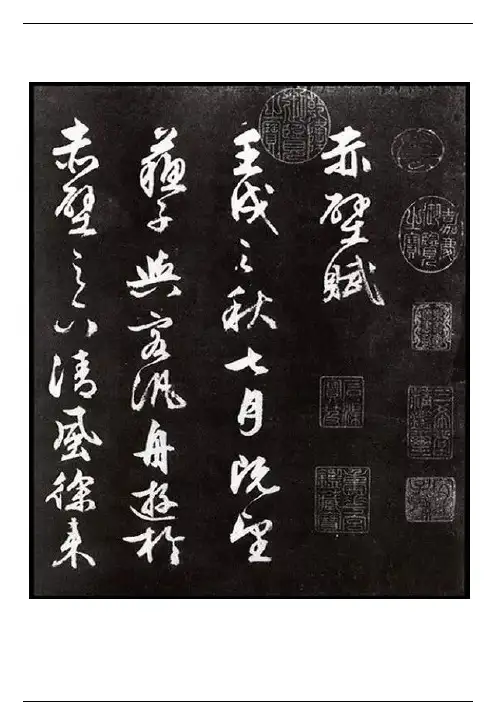 赤壁賦
壬戌之秋七月既望
蘇子與客泛舟遊於
赤壁之下清風徐來